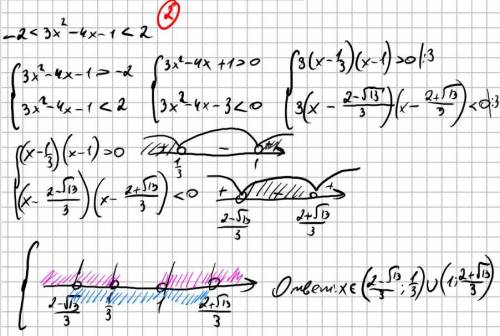 2
-2 < 3x² - 4x - 1 < 2
{ 3x² - 4x - 1 > -2
3x² - 4x - 1 < 2
{ 3x² - 4x + 1 > 0
3x² - 4x - 3 < 0
{ 3(x - 1/3)(x - 1) > 0 |:3
3(x - (2-√13)/3)(x - (2+√13)/3) < 0 |:3
{ (x - 1/3)(x - 1) > 0
(x - (2-√13)/3)(x - (2+√13)/3) < 0
-
1/3 1
+ - +
(2-√13)/3 (2+√13)/3
{ (2-√13)/3 1/3 1 (2+√13)/3
Ответ: x ∈ ((2-√13)/3; 1/3) ∪ (1; (2+√13)/3)